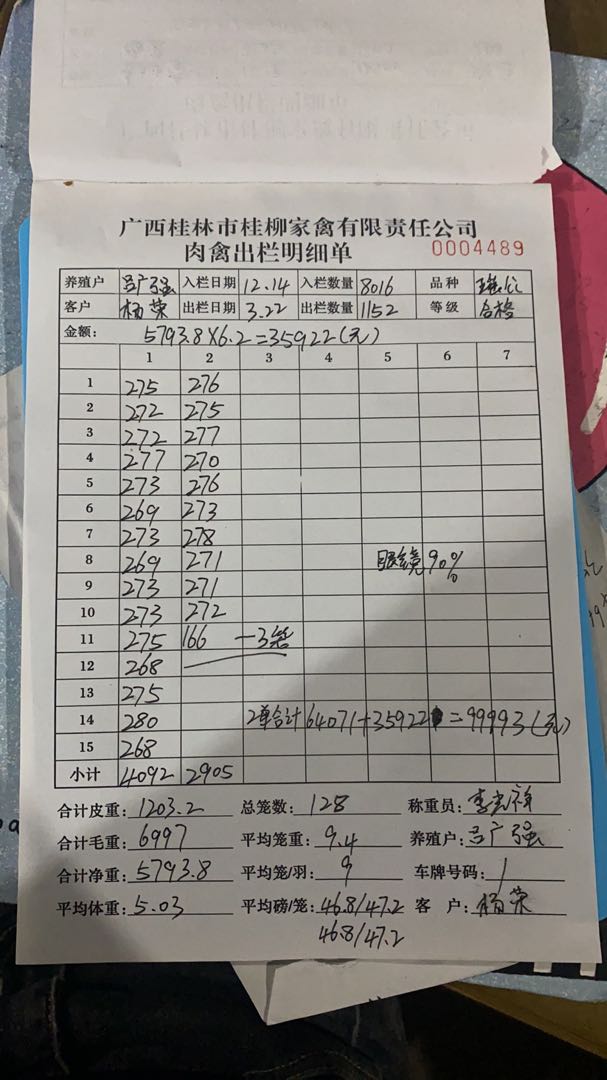 广西桂林市桂柳家禽有限责任公司
肉禽出栏明细单 0004489
养殖户 吕广强 入栏日期 12.14 入栏数量 8016 品种
客户 杨荣 出栏日期 3.22 出栏数量 1152 等级 合格
金额: 5793.8×6.2=35922(元)
1 2 3 4 5 6 7
1 275 276
2 272 275
3 272 277
4 277 270
5 273 276
6 269 273
7 273 278
8 269 271 眼镜90%
9 273 271
10 273 272
11 275 166 一3笼
12 268
13 275
14 280 2单合计 64071+35922=99993(元)
15 268
小计 4092 2905
合计皮重: 1203.2 总笼数: 128 称重员: 李光祥
合计毛重: 6997 平均笼重: 9.4 养殖户: 吕广强
合计净重: 5793.8 平均笼/羽: 9 车牌号码: /
平均体重: 5.03 平均磅/笼: 46.8/47.2 客 户: 杨荣
46.8/47.2